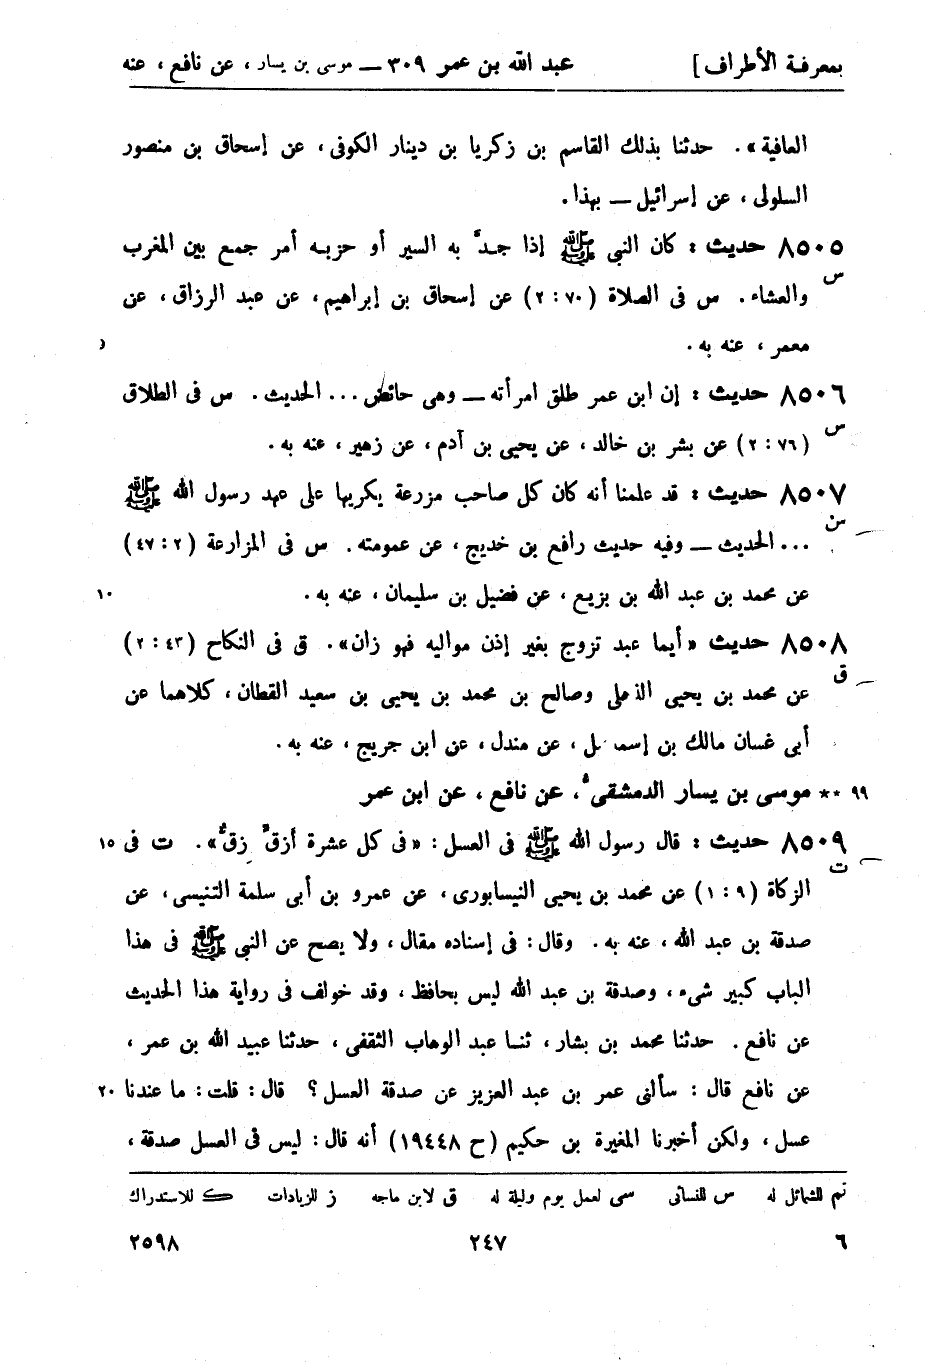 بمعرفة الأطراف] عبد الله بن عمر ٣٠٩ — موسى بن يسار، عن نافع، عنه
العافية». حدثنا بذلك القاسم بن زكريا بن دينار الكوفى، عن إسحاق بن منصور
السلولى، عن إسرائيل — بهذا.
٨٥٠٥ حديث: كان النبي ﷺ إذا جدّ به السير أو حزبه أمر جمع بين المغرب
س
والعشاء. س فى الصلاة (٧٠: ٢) عن إسحاق بن إبراهيم، عن عبد الرزاق، عن
معمر، عنه به.
٨٥٠٦ حديث: إن ابن عمر طلق امرأته — وهى حائض... الحديث. س فى الطلاق
س
(٧٦: ٢) عن بشر بن خالد، عن يحيى بن آدم، عن زهير، عنه به.
٨٥٠٧ حديث: قد علمنا أنه كان كل صاحب مزرعة يكريها على عهد رسول الله ﷺ
س
... الحديث — وفيه حديث رافع بن خديج، عن عمومته. س فى المزارعة (٢: ٤٧)
عن محمد بن عبد الله بن بزيع، عن فضيل بن سليمان، عنه به. ١٠
٨٥٠٨ حديث «أيما عبد تزوج بغير إذن مواليه فهو زان». ق فى النكاح (٤٣: ٢)
ق
عن محمد بن يحيى الذهلى وصالح بن محمد بن يحيى بن سعيد القطان، كلاهما عن
أبى غسان مالك بن إسماعيل، عن مندل، عن ابن جريج، عنه به.
٩٩ ** موسى بن يسار الدمشقى، عن نافع، عن ابن عمر
٨٥٠٩ حديث: قال رسول الله ﷺ فى العسل: «فى كل عشرة أزقّ زقٌّ». ت فى ١٥
ت
الزكاة (٩: ١) عن محمد بن يحيى النيسابورى، عن عمرو بن أبى سلمة التنيسى، عن
صدقة بن عبد الله، عنه به. وقال: فى إسناده مقال، ولا يصح عن النبي ﷺ فى هذا
الباب كبير شىء، وصدقة بن عبد الله ليس بحافظ، وقد خولف فى رواية هذا الحديث
عن نافع. حدثنا محمد بن بشار، ثنا عبد الوهاب الثقفى، حدثنا عبيد الله بن عمر،
عن نافع قال: سألنى عمر بن عبد العزيز عن صدقة العسل؟ قال: قلت: ما عندنا ٢٠
عسل، ولكن أخبرنا المغيرة بن حكيم (ح ١٩٤٤٨) أنه قال: ليس فى العسل صدقة،
تم للشمائل له س للنسائى سى لعمل يوم وليلة له ق لابن ماجه ز للزيادات ك للاستدراك
٦ ٢٤٧ ٢٥٩٨